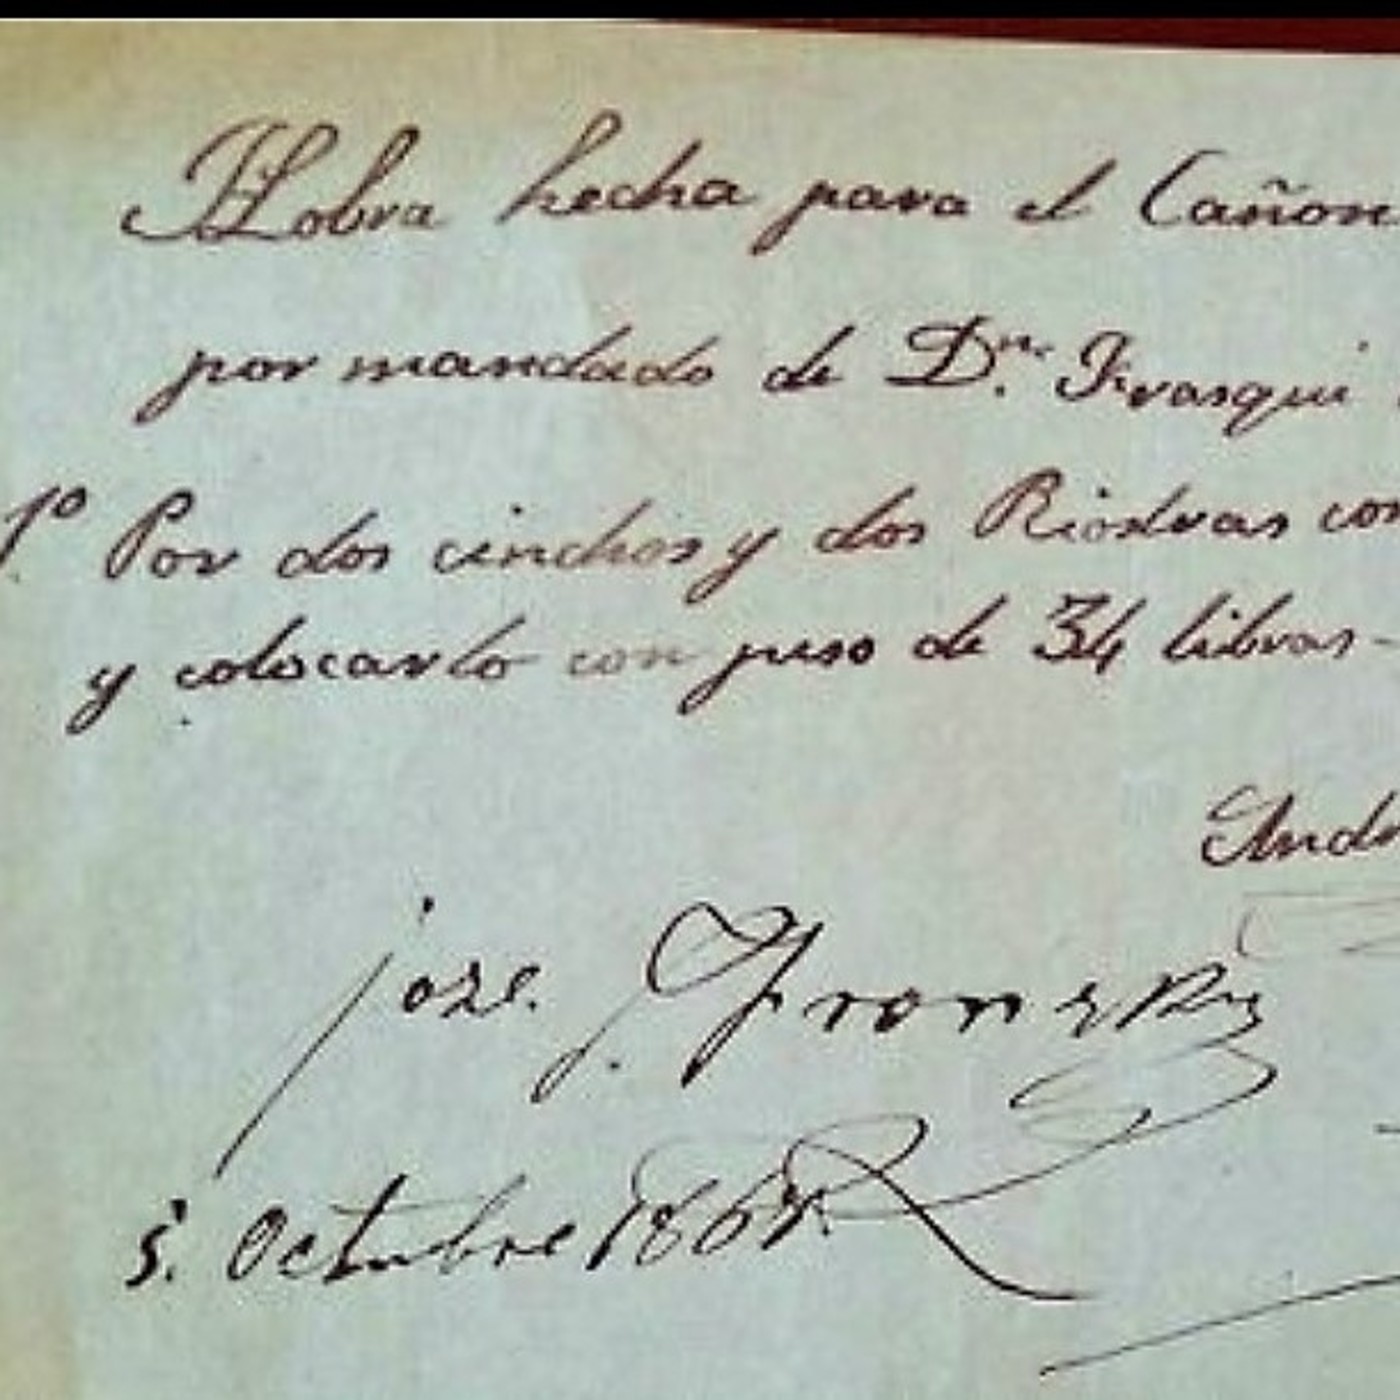 Hobra hecha para el Cañone
por mandado de Dn. Frasqui
1º Por dos cinchos y dos Riostras con
y colocarlo con peso de 34 libras-
Andr
jose.
5. Octubre 1867.